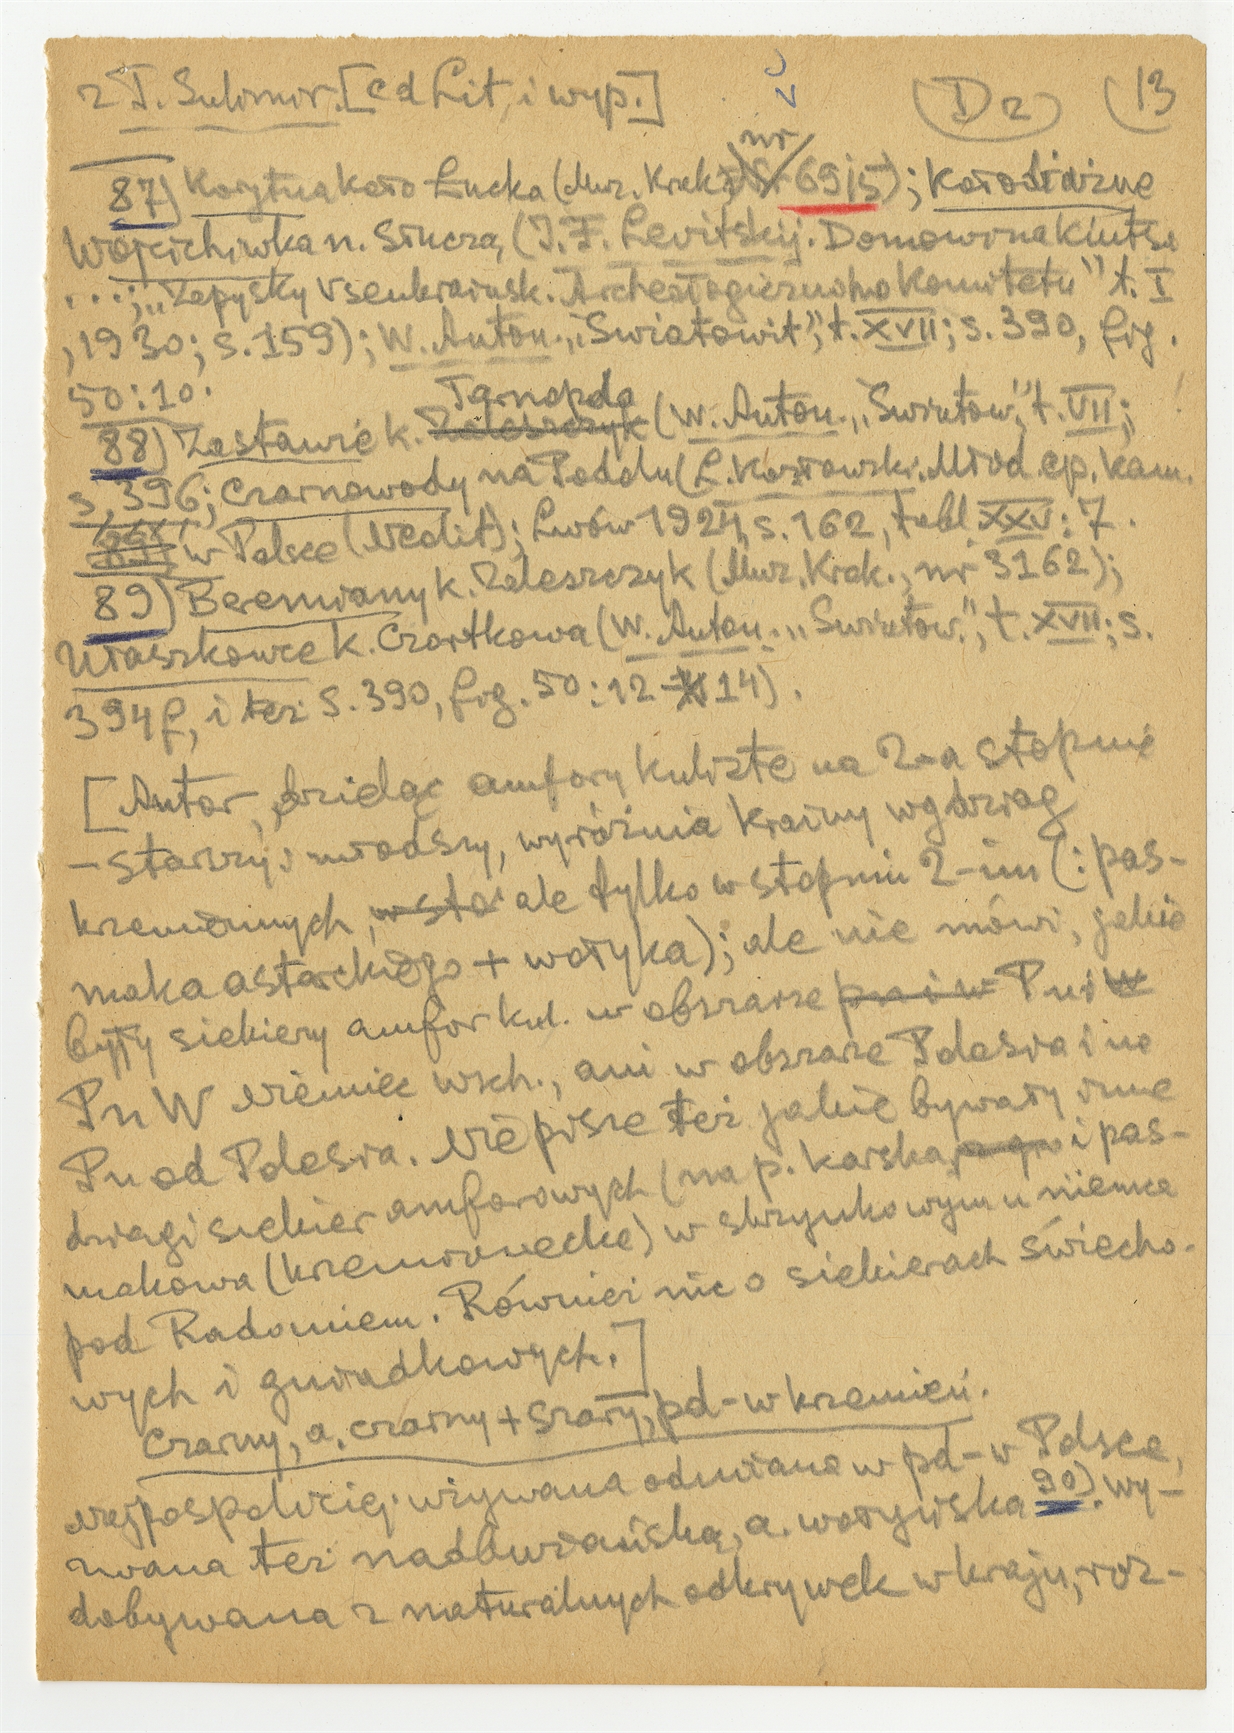 z T. Sulimir. [cd Lit. i wyp.] D2 13
87) Korytna koło Łucka (Muz. Krak., nr 6915); Kołodiażne
Wojcichiwka n. Słuczą, (J.F. Levitskij. Domowina Kiutse
...; „Zapysky Vseukrainsk. Archeołogicznoho Komitetu" t. I
, 1930; s. 159); W. Anton. „Światowit", t. XVII; s. 390, fig.
50:10.
88) Zastawie k. Tarnopola (W. Anton. „Światow.", t. VII;
s. 396; Czarnowody na Podolu (L. Kozłowski. Młod. ep. kam.
w Polsce (Neolit); Lwów 1924, s. 162, tabl. XXV: 7.
89) Beremiany k. Zaleszczyk (Muz. Krak., nr 3162);
Ułaszkowce k. Czortkowa (W. Anton. „Światow.", t. XVII; s.
394f, i też s. 390, fig. 50:12-14).
[Autor, dzieląc amfory kuliste na 2-a stopnie
– starszy i młodszy, wyróżnia krainy wg dziag
krzemiennych, ale tylko w stopniu 2-im (: pas-
maka astarckiego + wołyka); ale nie mówi, jakie
były siekiery amfor kul. w obszarze Pn i
Pn W Niemiec wsch., ani w obszarze Polesia i na
Pn od Polesia. Nie pisze też jakie bywały inne
dziagi siekier amforowych (na p. karska i pas-
makowa (krzemionecka) w skrzynkowym u niemca
pod Radomiem. Również nic o siekierach świecho-
wych i gwiadkowych.]
Czarny, a. czarny + szary, pd-w krzemień.
Najpospoliciej używana odmiana w pd-w Polsce,
zwana też nadbużańską, a. wołyńska 90). Wy-
dobywana z naturalnych odkrywek w kraju, roz-